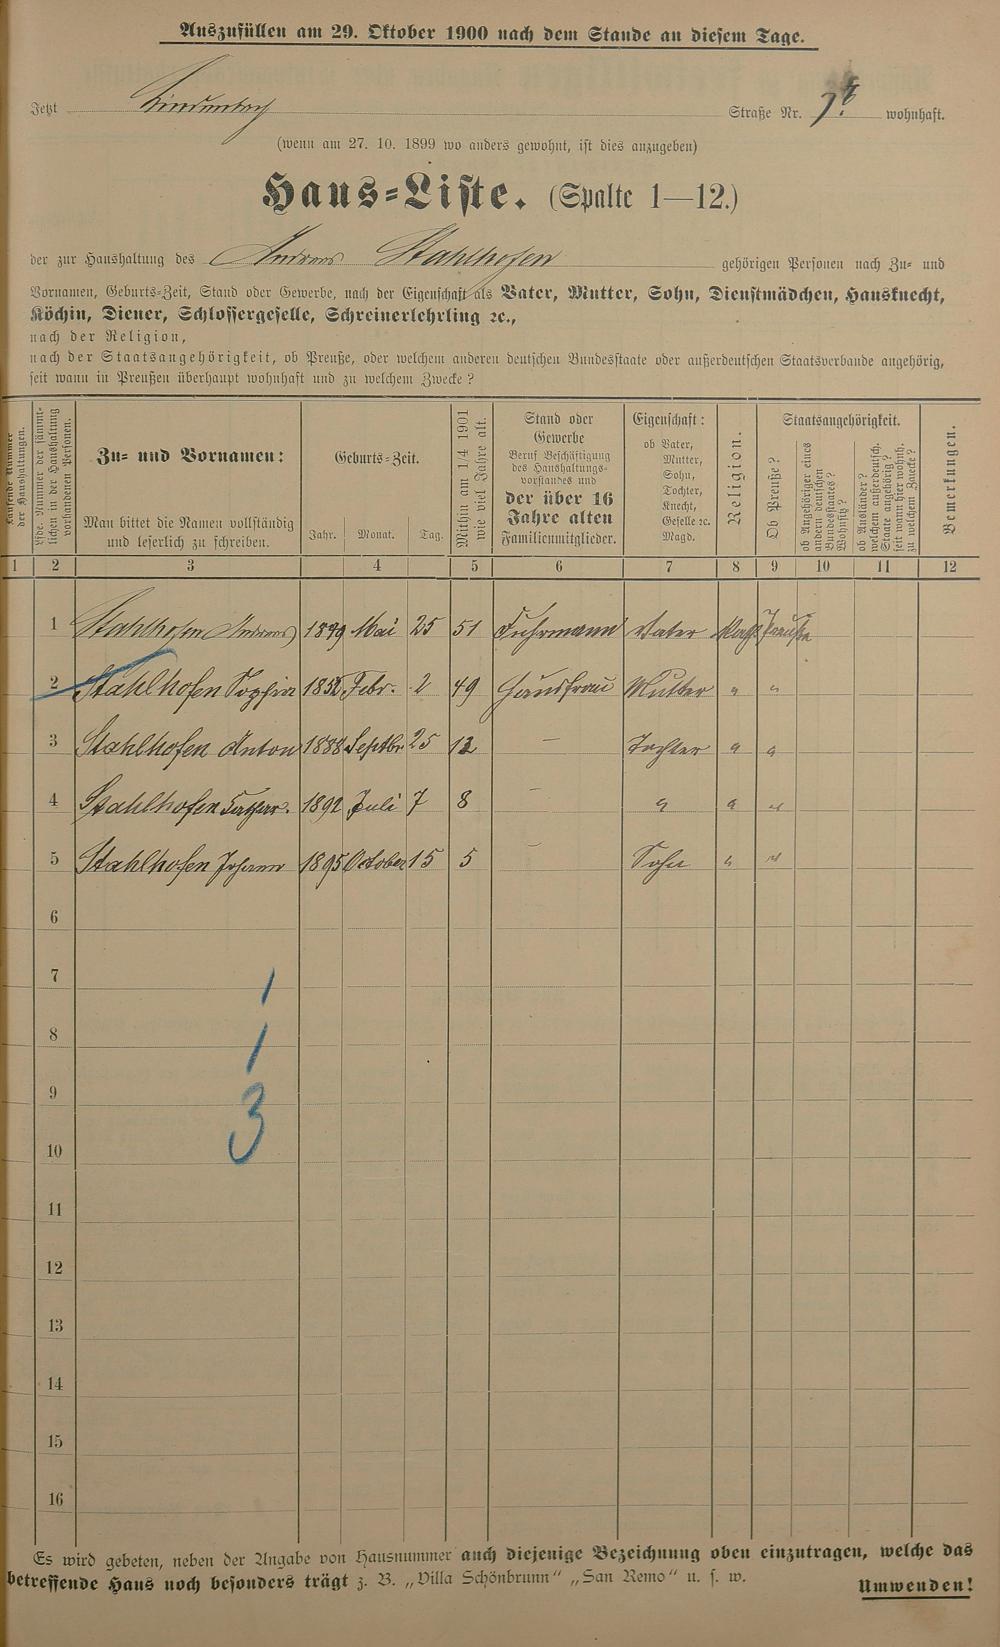 Auszufüllen am 29. Oktober 1900 nach dem Stande an diesem Tage.
Jetzt Lindenbach Straße Nr. wohnhaft.
(wenn am 27. 10. 1899 wo anders gewohnt, ist dies anzugeben)
Haus-Liste. (Spalte 1—12.)
der zur Haushaltung des Andreas Stahlhofen gehörigen Personen nach Zu- und
Vornamen, Geburts-Zeit, Stand oder Gewerbe, nach der Eigenschaft als Vater, Mutter, Sohn, Dienstmädchen, Hausknecht,
Köchin, Diener, Schlossergeselle, Schreinerlehrling ꝛc.,
nach der Religion,
nach der Staatsangehörigkeit, ob Preuße, oder welchem anderen deutschen Bundesstaate oder außerdeutschen Staatsverbande angehörig,
seit wann in Preußen überhaupt wohnhaft und zu welchem Zwecke?
Laufende Nummer
der Haushaltungen.
Lfde. Nummer der sämmt-
lichen in der Haushaltung
vorhandenen Personen.
Zu- und Vornamen:
Man bittet die Namen vollständig
und leserlich zu schreiben.
Geburts-Zeit.
Jahr. Monat. Tag.
Mithin am 1/4 1901
wie viel Jahre alt.
Stand oder
Gewerbe
Beruf Beschäftigung
des Haushaltungs-
vorstandes und
der über 16
Jahre alten
Familienmitglieder.
Eigenschaft:
ob Vater,
Mutter,
Sohn,
Tochter,
Knecht,
Geselle ꝛc.
Magd.
Religion.
Staatsangehörigkeit.
Ob Preuße?
ob Angehöriger eines
andern deutschen
Bundesstaates?
Wohnsitz?
ob Ausländer?
welchem außerdeutsch.
Staate angehörig?
seit wann hier wohnh.
zu welchem Zwecke?
Bemerkungen.
1 2 3 4 5 6 7 8 9 10 11 12
1 Stahlhofen Andreas 1849 Mai 25 51 Fuhrmann Vater Kath. Preuße
2 Stahlhofen Sophia 1852 Febr. 2 49 Hausfrau Mutter " "
3 Stahlhofen Anton 1888 Septbr 25 12 — Tochter " "
4 Stahlhofen Cathar. 1892 Juli 7 8 — " " "
5 Stahlhofen Johann 1895 October 15 5 — Sohn " "
6
7
1
8
1
9
3
10
11
12
13
14
15
16
Es wird gebeten, neben der Angabe von Hausnummer auch diejenige Bezeichnung oben einzutragen, welche das
betreffende Haus noch besonders trägt z. B. „Villa Schönbrunn" „San Remo" u. s. w.
Umwenden!